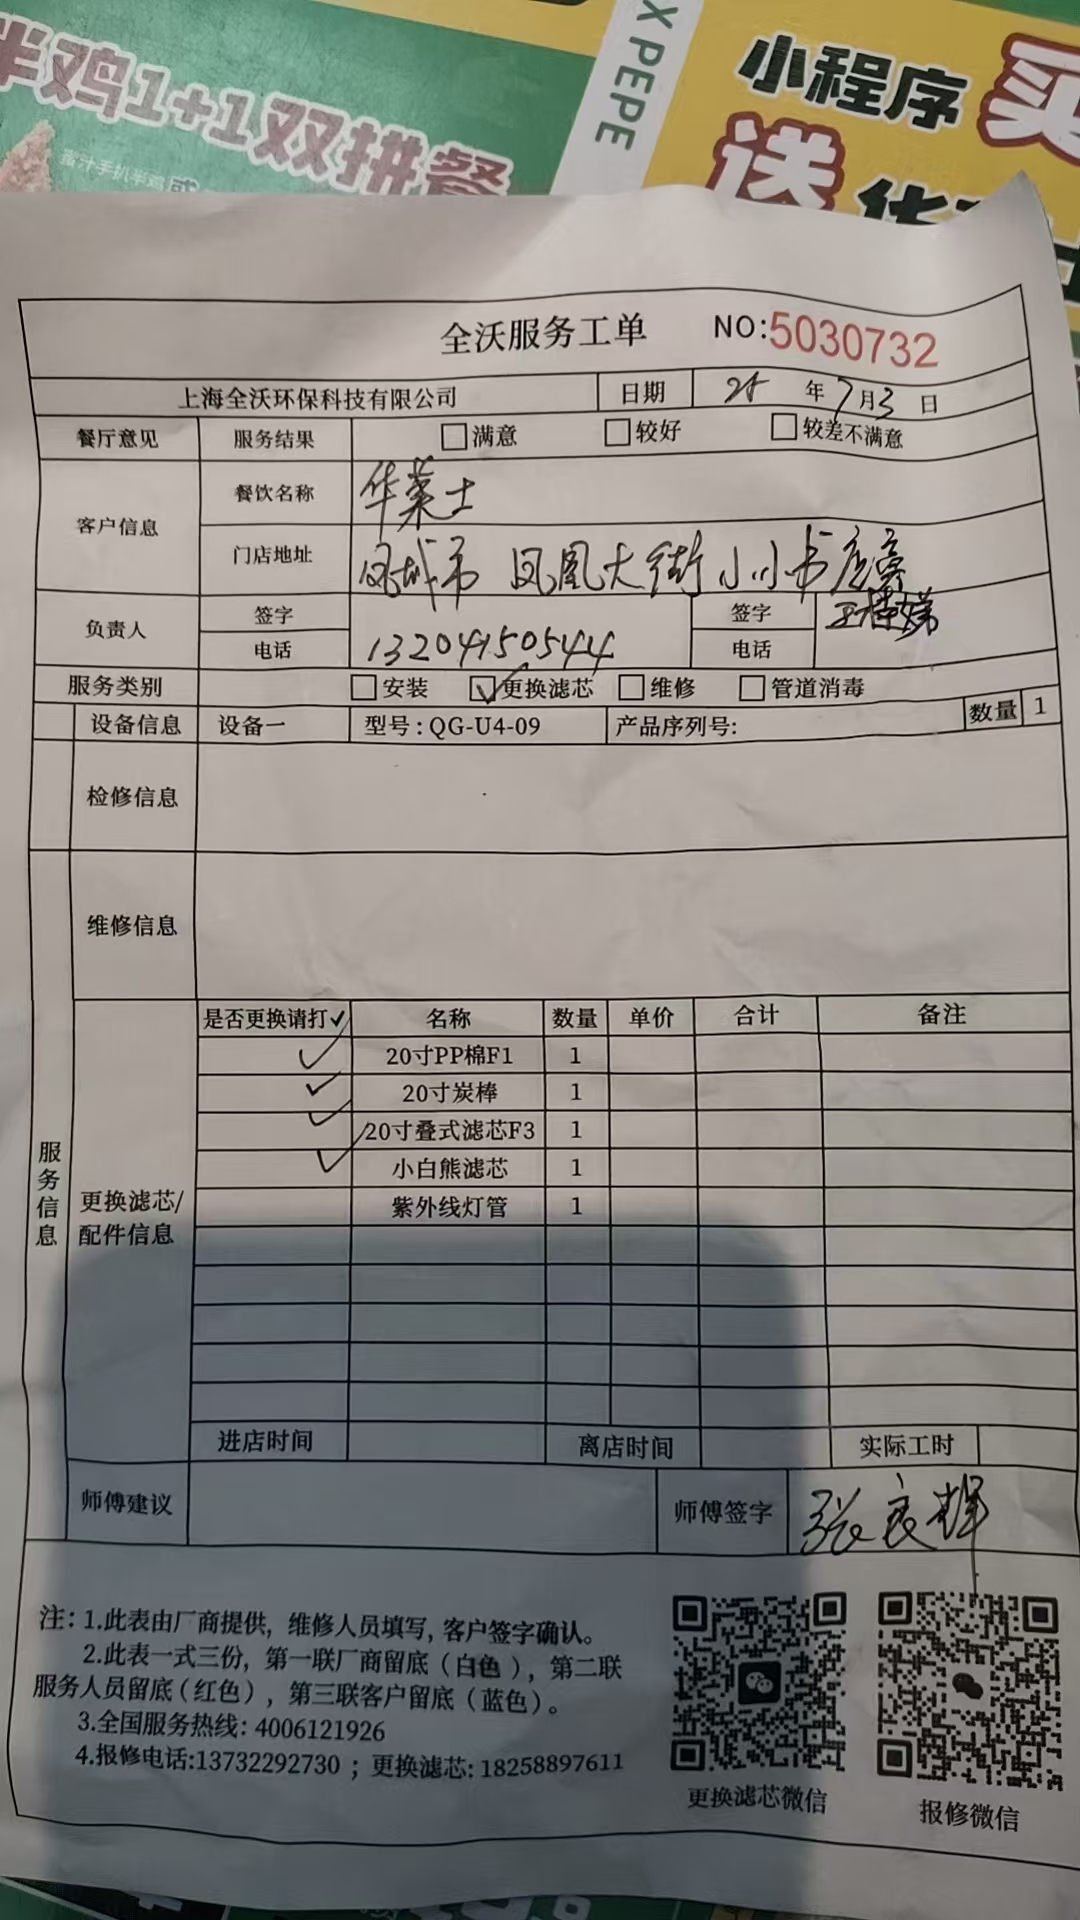 半鸡1+1双拼餐
蜜汁手扒半鸡或
X PEPE
小程序 买
送 华
全沃服务工单 NO:5030732
上海全沃环保科技有限公司 日期 25 年 7 月 3 日
餐厅意见 服务结果 满意 较好 较差不满意
客户信息 餐饮名称 华莱士
门店地址 凤城市 凤凰大街小小书店旁
负责人 签字 签字
电话 13204150544 电话
服务类别 安装 ✓更换滤芯 维修 管道消毒
设备信息 设备一 型号:QG-U4-09 产品序列号: 数量 1
检修信息
维修信息
服务信息
更换滤芯/
配件信息
是否更换请打✓ 名称 数量 单价 合计 备注
✓ 20寸PP棉F1 1
✓ 20寸炭棒 1
✓ 20寸叠式滤芯F3 1
✓ 小白熊滤芯 1
紫外线灯管 1
进店时间 离店时间 实际工时
师傅建议 师傅签字 张良辉
注: 1.此表由厂商提供, 维修人员填写, 客户签字确认。
2.此表一式三份, 第一联厂商留底(白色), 第二联
服务人员留底(红色), 第三联客户留底(蓝色)。
3.全国服务热线: 4006121926
4.报修电话:13732292730 ; 更换滤芯: 18258897611
更换滤芯微信 报修微信